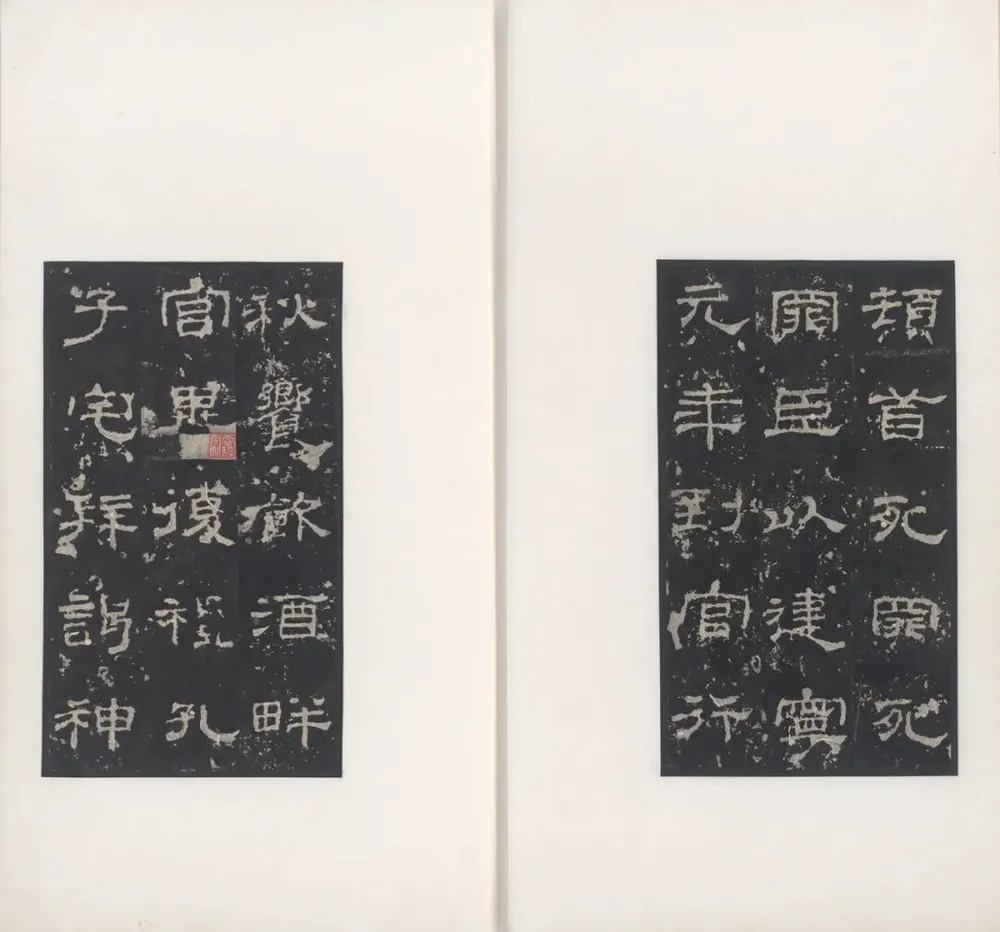 頓首死罪死
罪臣以建寧
元年到官行
秋饗飲酒畔
宮畢復禮孔
子宅拜謁神